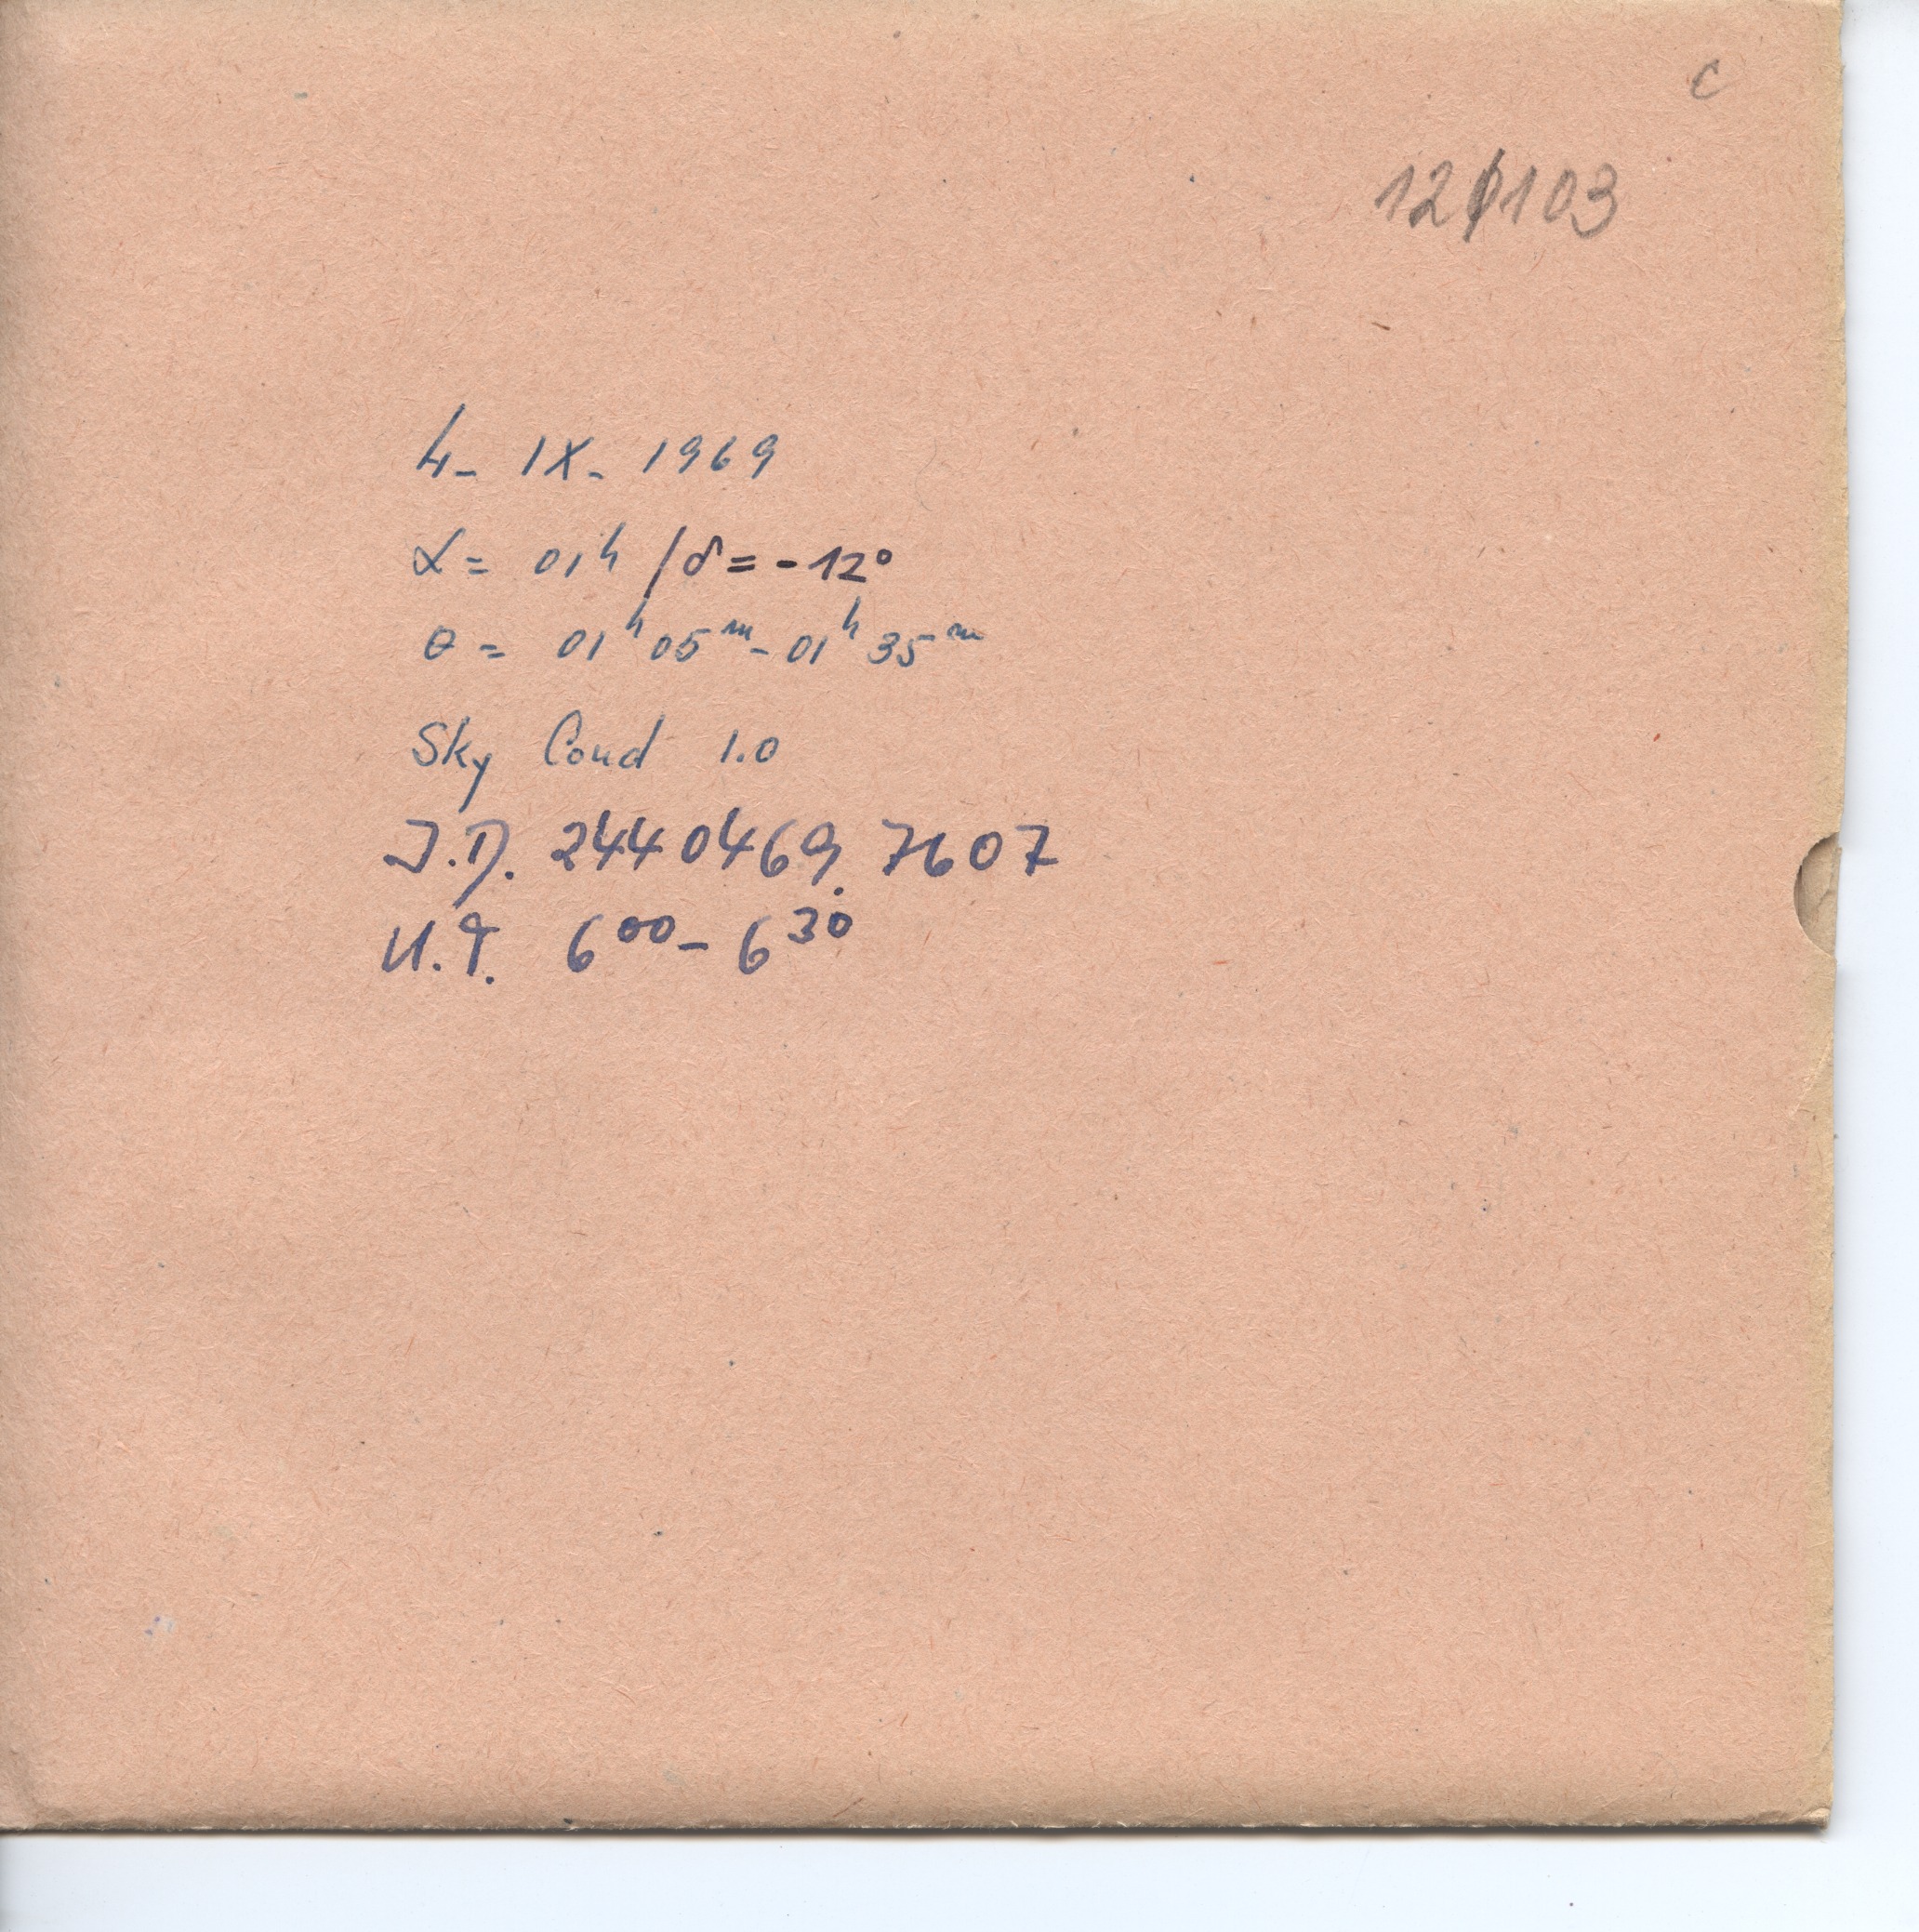 c
12 103
4- IX- 1969
α = 01ʰ / δ = -12°
θ = 01ʰ 05ᵐ - 01ʰ 35ᵐ
Sky Cond 1.0
J.D. 2440469.7607
U.T. 6⁰⁰ - 6³⁰